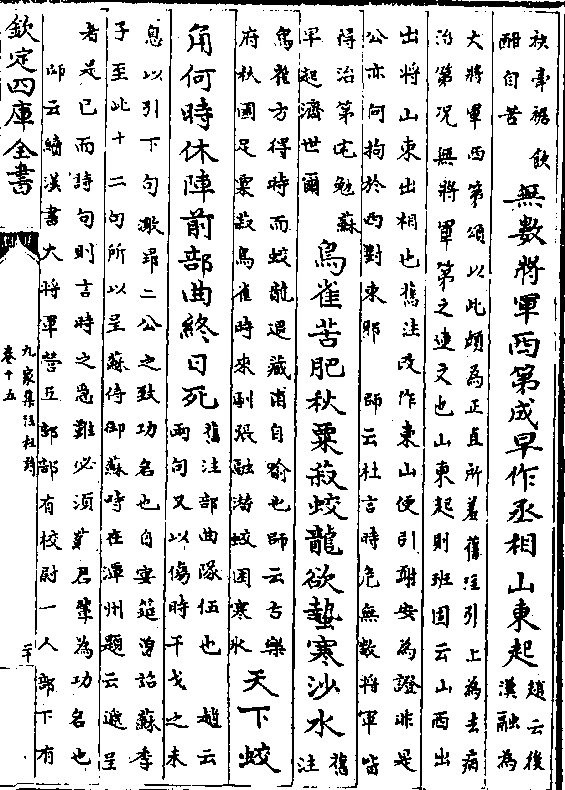 袂牽裾飲
酣自苦
無數將軍西第成早作丞相山東起
趙云後
漢融為
大將軍西第頌以此頗為正直所羞舊注引上為去病
治第况無將軍第之連文也山東起則班固云山西出
出將山東出相也舊注改作東山便引謝安為證非是
公亦何拘於西對東耶 師云杜言時危無數將軍皆
得治第宅勉蘇
早起濟世爾
烏雀苦肥秋粟菽蛟龍欲蟄寒沙水
舊
注
烏雀方得時而蛟龍退藏甫自喻也師云古樂
府秋園足粟菽烏雀時來劇張融潜蛟困寒水
天下蛟
角何時休陣前部曲終日死
舊注部曲隊伍也 趙云
兩句又以傷時干戈之未
息以引下句激昂二公之致功名也自宴筵曾詔蘇李
子至此十二句所以呈蘇侍御蘇時在潭州題云遞呈
者是已而詩句則言時之急難必須爾君輩為功名也
師云續漢書大將軍營五部部有校尉一人部下有
欽定四庫全書
九家集注杜詩
卷十五
二十